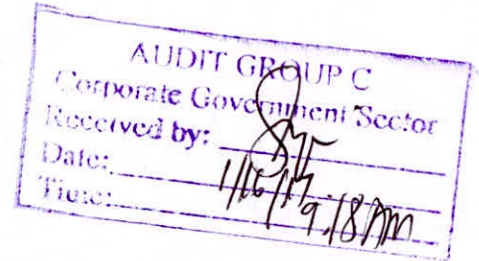 AUDIT GROUP C
Corporate Government Sector
Received by:
Date: 1/16/17
Time: 9:18 AM